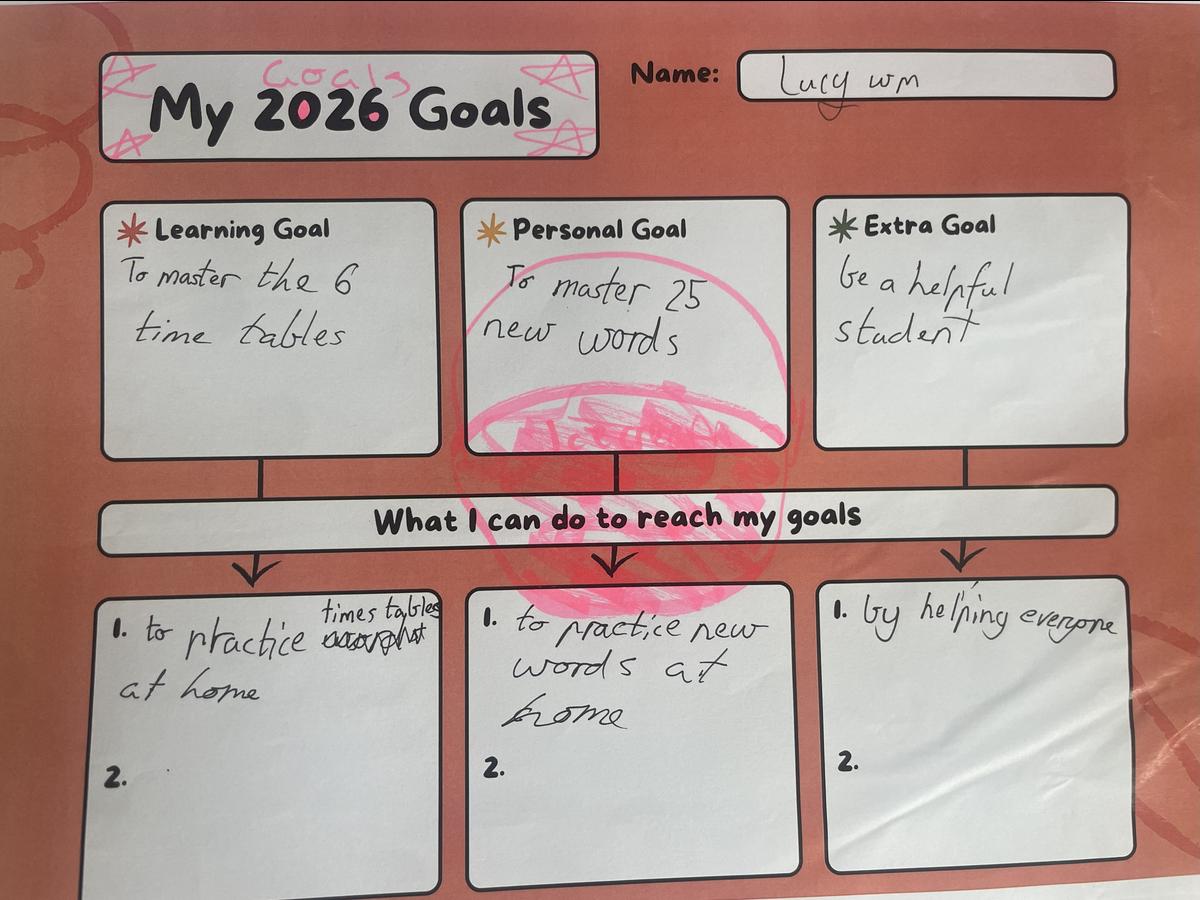 Goals
My 2026 Goals
Name: Lucy wm
Learning Goal
To master the 6
time tables
Personal Goal
To master 25
new words
Extra Goal
be a helpful
student
What I can do to reach my goals
times tables
1. to practice
at home
2.
1. to practice new
words at
home
2.
1. by helping everyone
2.